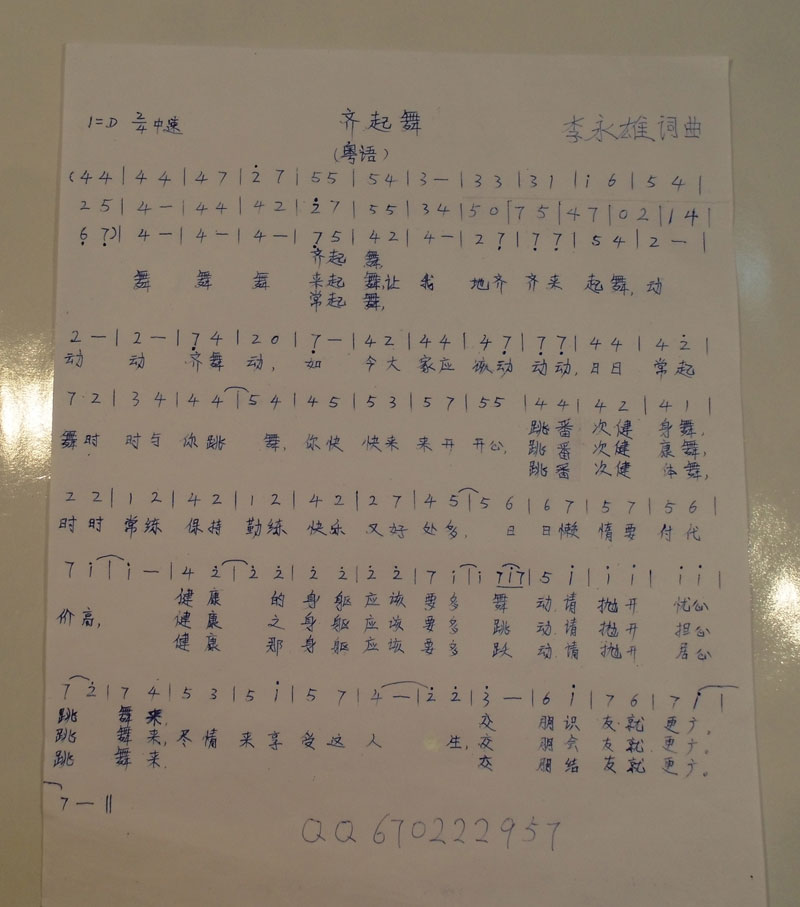 1=D 2/4 中速 齐起舞 李永雄词曲
(粤语)
(4 4 | 4 4 | 4 7 | 2̇ 7 | 5 5 | 5 4 | 3 — | 3 3 | 3 1 | i 6 | 5 4 |
2 5 | 4 — | 4 4 | 4 2 | 2̇ 7 | 5 5 | 3 4 | 5 0 | 7 5 | 4 7 | 0 2 | 1 4 |
6̣ 7̣)| 4 — | 4 — | 4 — | 7̣ 5 | 4 2 | 4 — | 2 7̣ | 7̣ 7̣ | 5 4 | 2 — |
齐起 舞,
舞 舞 舞 来起 舞,让 我 地齐 齐来 起舞,动
常起 舞,
2 — | 2 — | 7̣ 4 | 2 0 | 7̣ — | 4 2 | 4 4 | 4 7̣ | 7̣ 7̣ | 4 4 | 4 2̇ |
动 动 齐舞 动, 如 今大 家应 该动 动动,日日 常起
7 2 | 3 4 | 4 4 | 5 4 | 4 5 | 5 3 | 5 7 | 5 5 | 4 4 | 4 2 | 4 1 |
跳番 次健 身舞,
舞时 时与 你跳 舞,你快 快来 来开 开心, 跳番 次健 康舞,
跳番 次健 体舞,
2 2 | 1 2 | 4 2 | 1 2 | 4 2 | 2 7 | 4 5 | 5 6 | 6 7 | 5 7 | 5 6
时时 常练 保持 勤练 快乐 又好 处多, 日 日懒 惰要 付代
7 i | i — | 4 2̇ | 2̇ 2̇ | 2̇ 2̇ | 2̇ 2̇ | 7 i | i 7i7 | 5 i | i i | i i |
健康 的身躯应该要多 舞 动.请 抛开 忧心
价高, 健康 之身躯应该要多 跳 动.请 抛开 担心
健康 那身躯应该要多 跃 动.请 抛开 居心
7 2̇ | 7 4 | 5 3 | 5 i | 5 7 | 4 — | 2̇ 2̇ | 3̇ — | 6 i | 7 6 | 7 i |
跳 舞来, 交 朋识 友就 更广。
跳 舞来,尽情 来享 受这 人 生,交 朋会 友就 更广。
跳 舞来. 交 朋结 友就 更广。
7 — ||
QQ 670222957